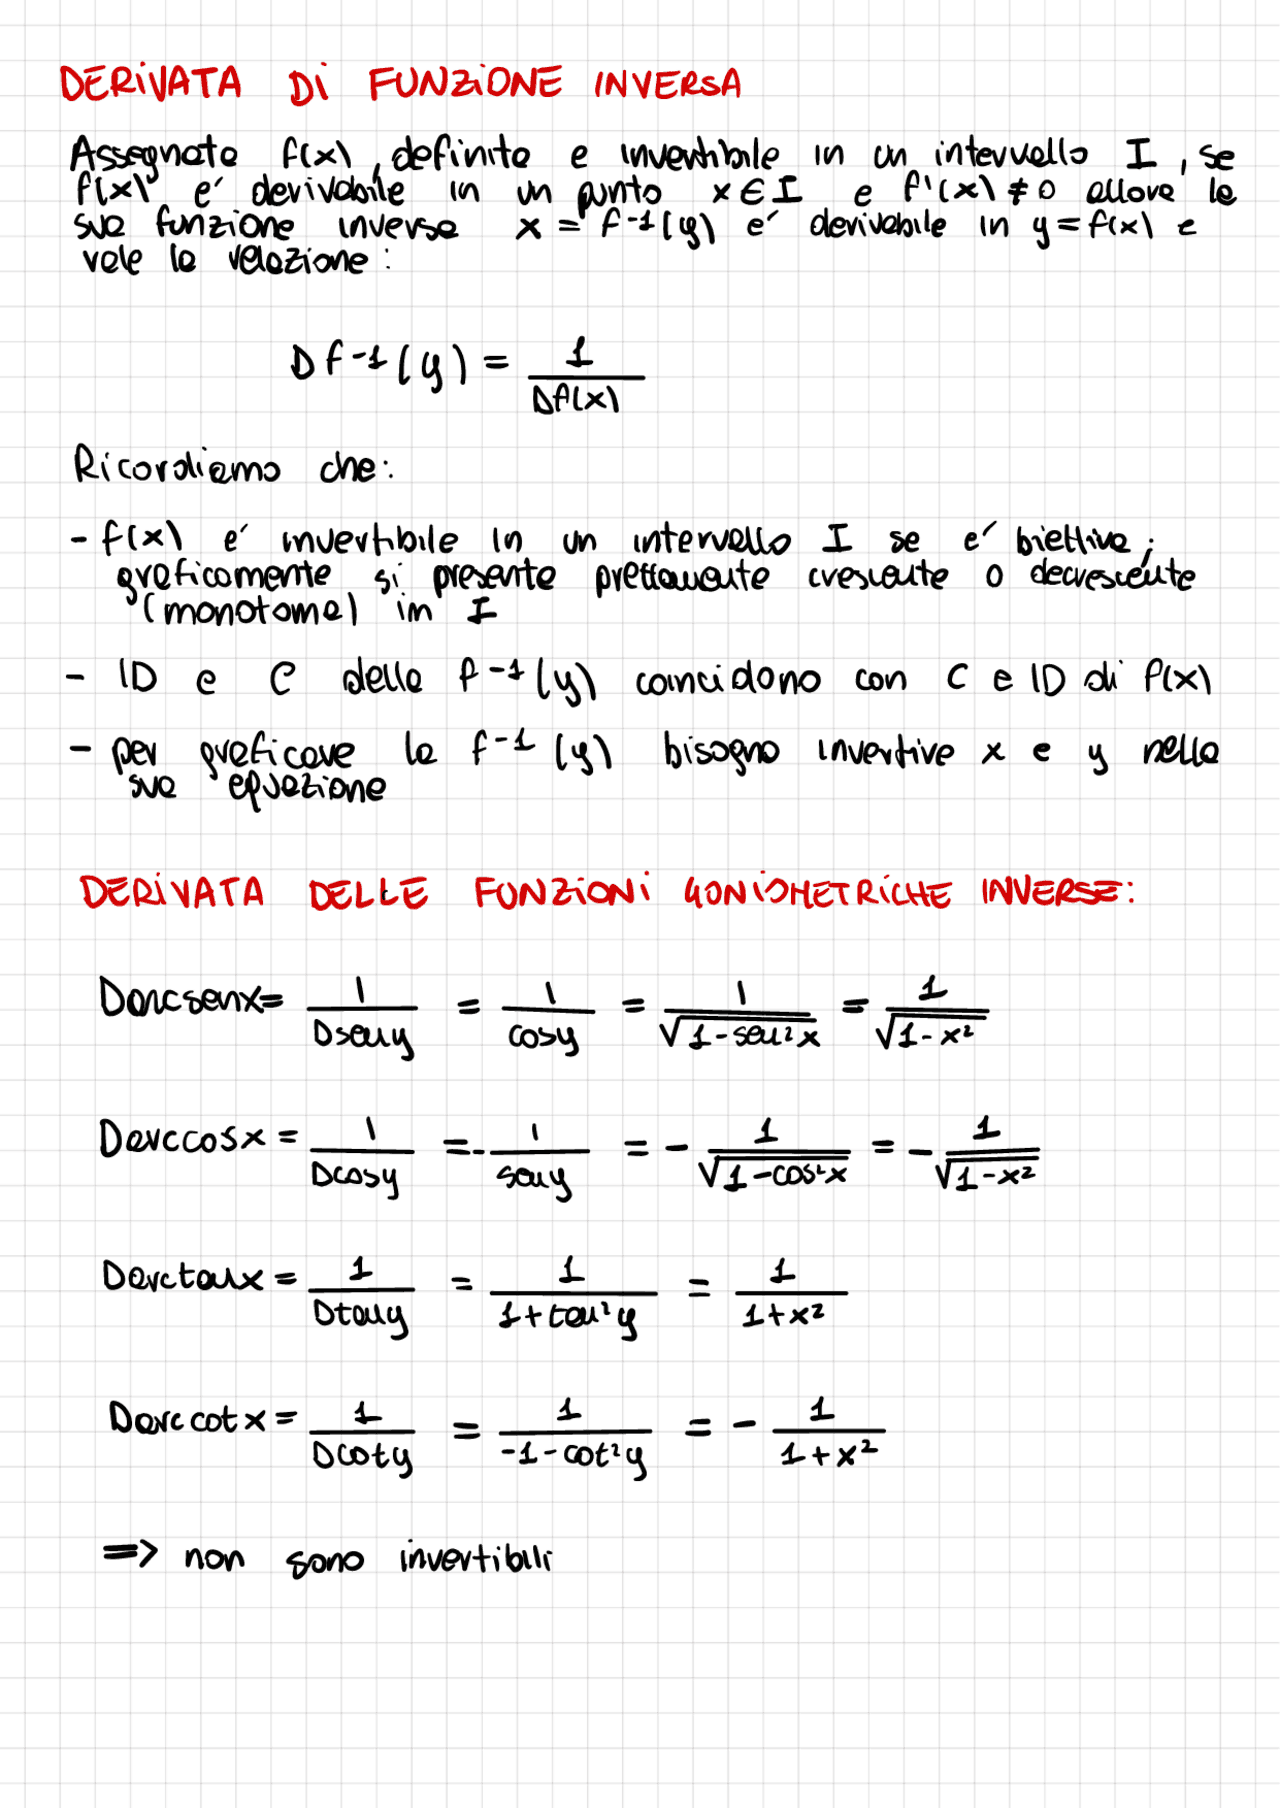 DERIVATA DI FUNZIONE INVERSA
Assegnata f(x), definita e invertibile in un intervallo I, se
f(x) e' derivabile in un punto x ∈ I e f'(x) ≠ 0 allora la
sua funzione inversa x = f⁻¹(y) e' derivabile in y = f(x) e
vale la relazione:
D f⁻¹(y) = 1 / Df(x)
Ricordiamo che:
- f(x) e' invertibile in un intervallo I se e' biettiva;
graficamente si presenta prettamente crescente o decrescente
(monotoma) im I
- ID e C della f⁻¹(y) coincidono con C e ID di f(x)
- per graficare la f⁻¹(y) bisogna invertire x e y nella
sua equazione
DERIVATA DELLE FUNZIONI GONIOMETRICHE INVERSE:
Darcsenx = 1 / Dseny = 1 / cosy = 1 / √(1-sen²x) = 1 / √(1-x²)
Darccosx = 1 / Dcosy = - 1 / seny = - 1 / √(1-cos²x) = - 1 / √(1-x²)
Darctanx = 1 / Dtany = 1 / 1+tan²y = 1 / 1+x²
Darccotx = 1 / Dcoty = 1 / -1-cot²y = - 1 / 1+x²
=> non sono invertibili